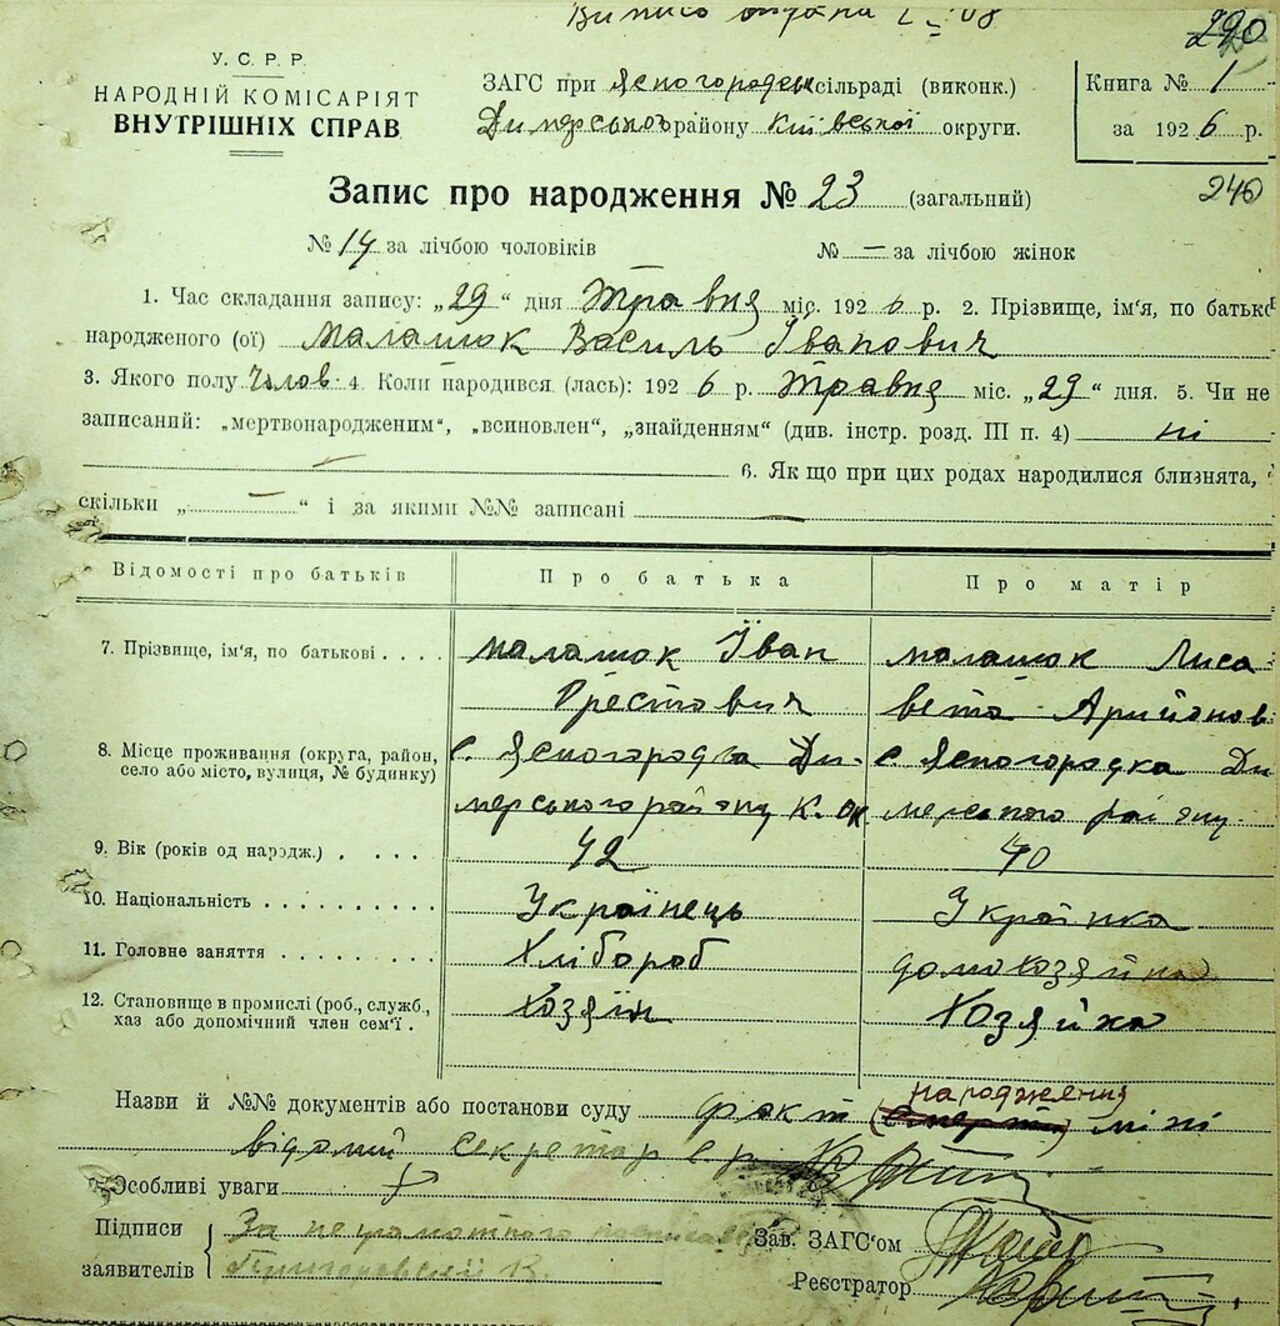 290
У. С. Р. Р.
НАРОДНІЙ КОМІСАРІЯТ
ВНУТРІШНІХ СПРАВ
ЗАГС при Ясногородськ сільраді (виконк.)
Димерського району Київської округи.
Книга № 1
за 1926 р.
Запис про народження № 23 (загальний)
240
№ 14 за лічбою чоловіків № — за лічбою жінок
1. Час складання запису: „29“ дня Травня міс. 1926 р. 2. Прізвище, ім'я, по батькові
народженого (ої) Малашок Василь Іванович
3. Якого полу Чолов. 4. Коли народився (лась): 1926 р. Травня міс. „29“ дня. 5. Чи не
записаний: „мертвонародженим“, „всиновлен“, „знайденням“ (див. інстр. розд. III п. 4) ні
— 6. Як що при цих родах народилися близнята,
скільки „—“ і за якими №№ записані —
Відомості про батьків Про батька Про матір
7. Прізвище, ім'я, по батькові .... Малашок Іван Малашок Лиса
Орестович вета Арийонов
8. Місце проживання (округа, район, с. Ясногородка Ди- с Ясногородка Ди
село або місто, вулиця, № будинку) мерського району К. ок мерського району
9. Вік (років од народж.) . ... 42 40
10. Національність .......... Українець Українка
11. Головне заняття ......... Хлібороб домохозяйка
12. Становище в промислі (роб., служб., Хозяїн Хозяйка
хаз або допомічний член сем'ї .
народження
Назви й №№ документів або постанови суду факт (смерти) мені
відомий секретар с/р
Особливі уваги
Підписи За неграмотного
заявителів
Зав. ЗАГС'ом
Реєстратор